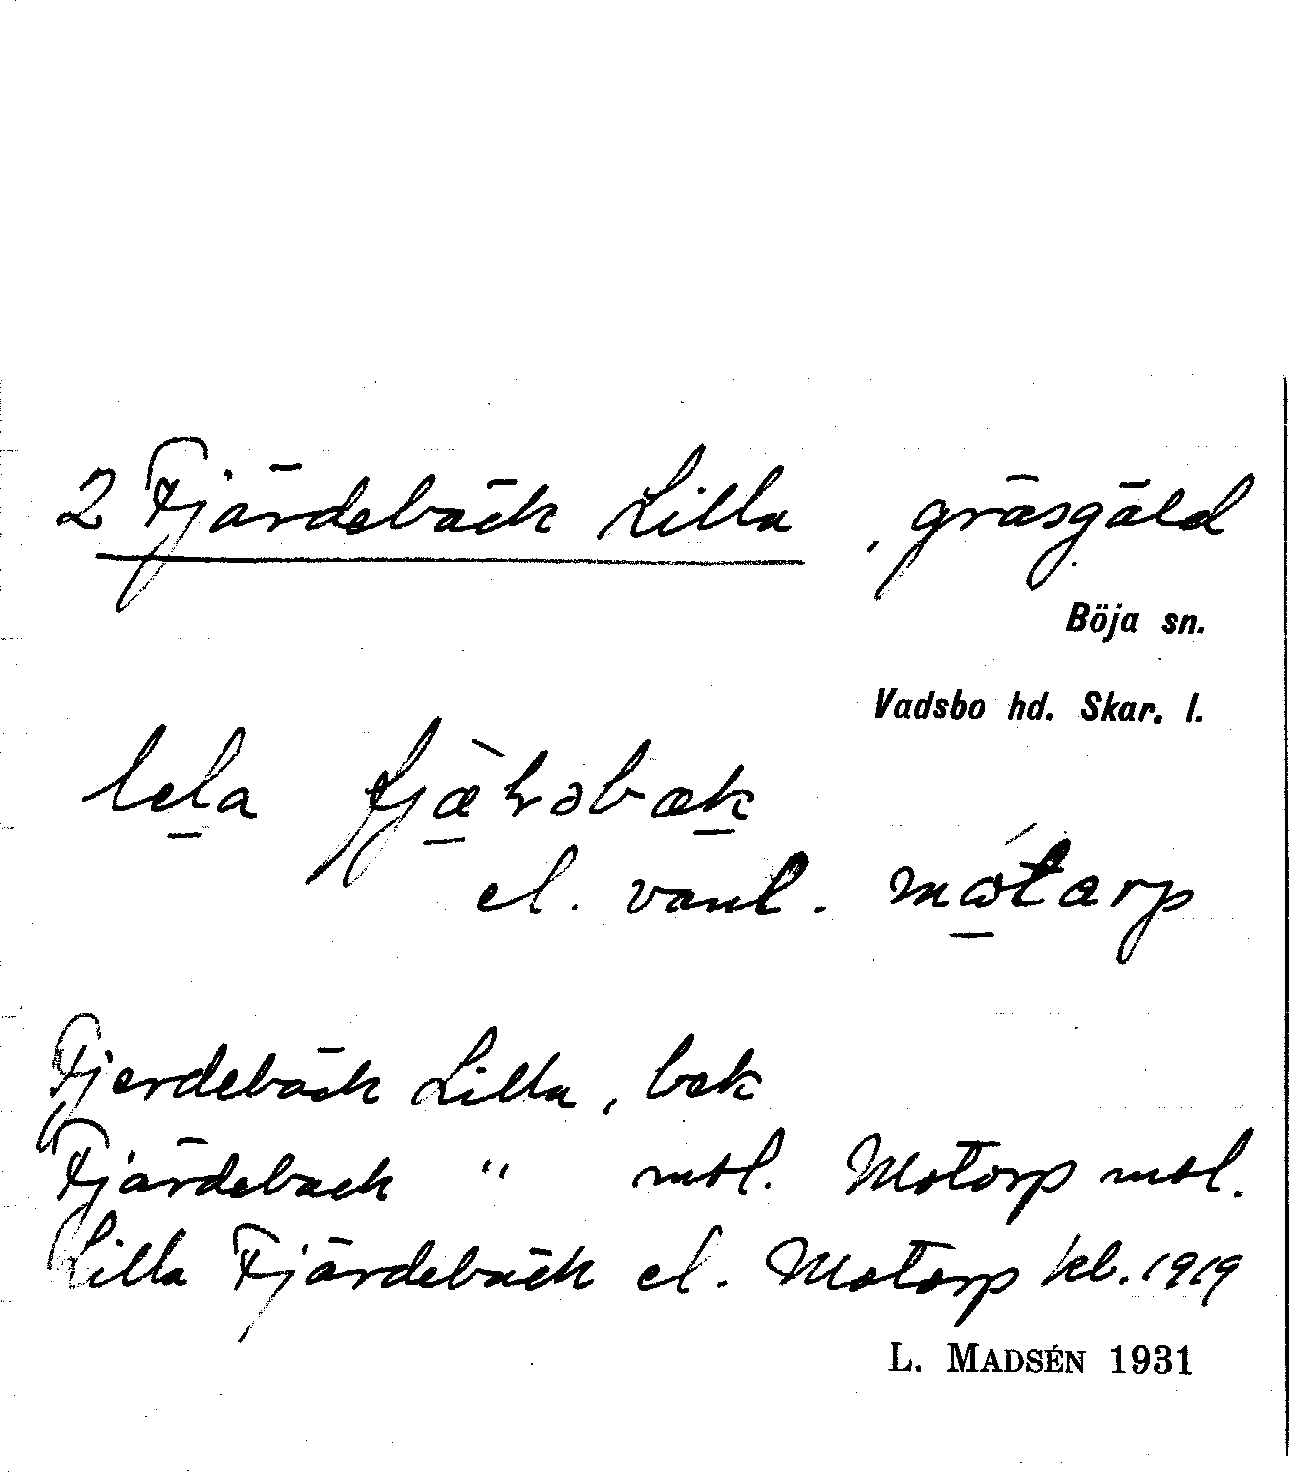 2 Fjärdebäck Lilla, gräsgäld
Böja sn.
Vadsbo hd. Skar. l.
lela
el. vanl.
Fjerdebäck Lilla, bek
Fjärdeback " mtl. Motorp mtl.
Lilla Fjärdebäck el. Motorp kb. 1919
L. MADSÉN 1931